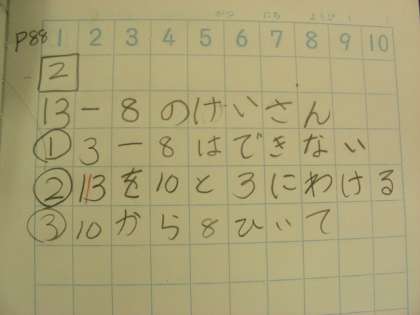 がつ にち ようび
P88 1 2 3 4 5 6 7 8 9 10
2
13-8のけいさん
① 3-8はできない
② 13を10と3にわける
③ 10から8ひいて